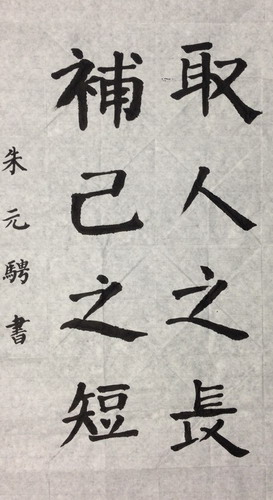 取人之長
補己之短
朱元騁書